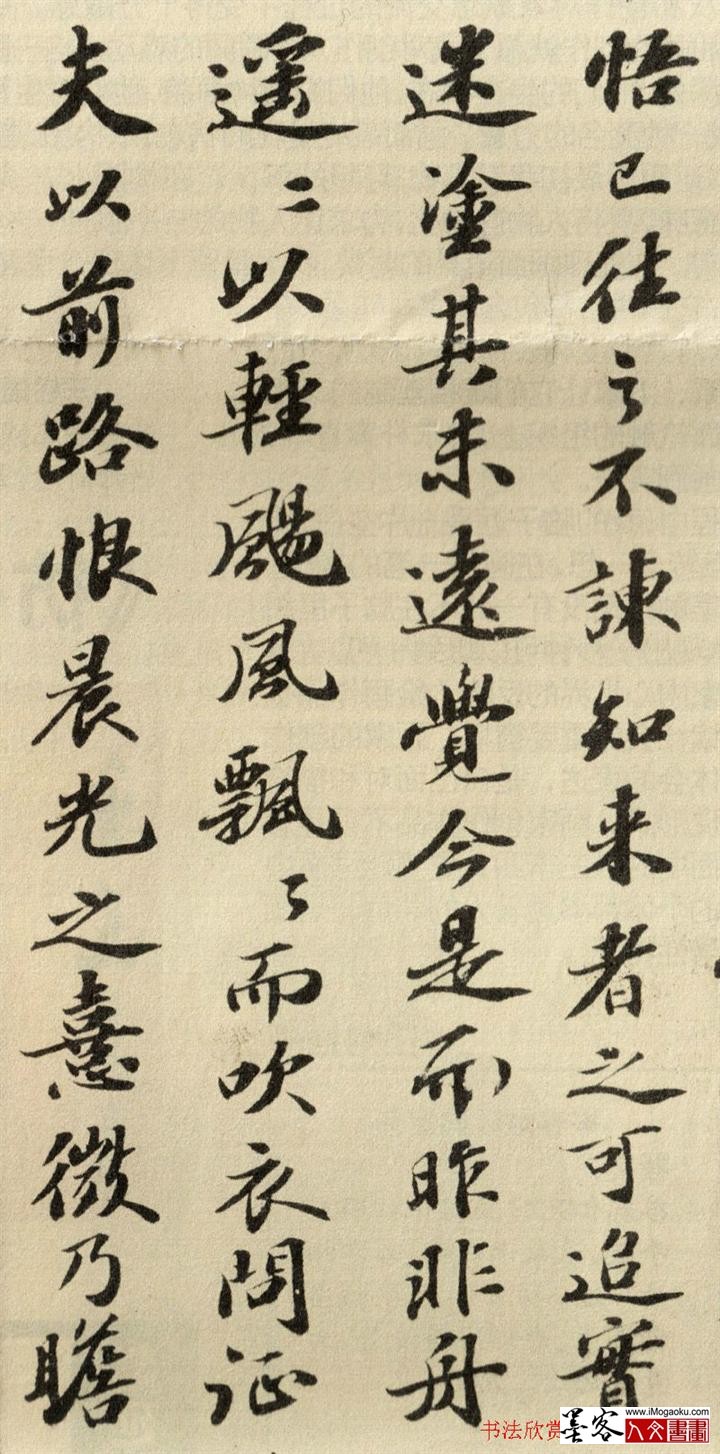 悟已往之不諫知来者之可追實
迷塗其未遠覺今是而昨非舟
遥〻以輕颺風飄〻而吹衣問征
夫以前路恨晨光之熹微乃瞻
书法欣赏
墨客
www.iMogaoku.com
人文書畫